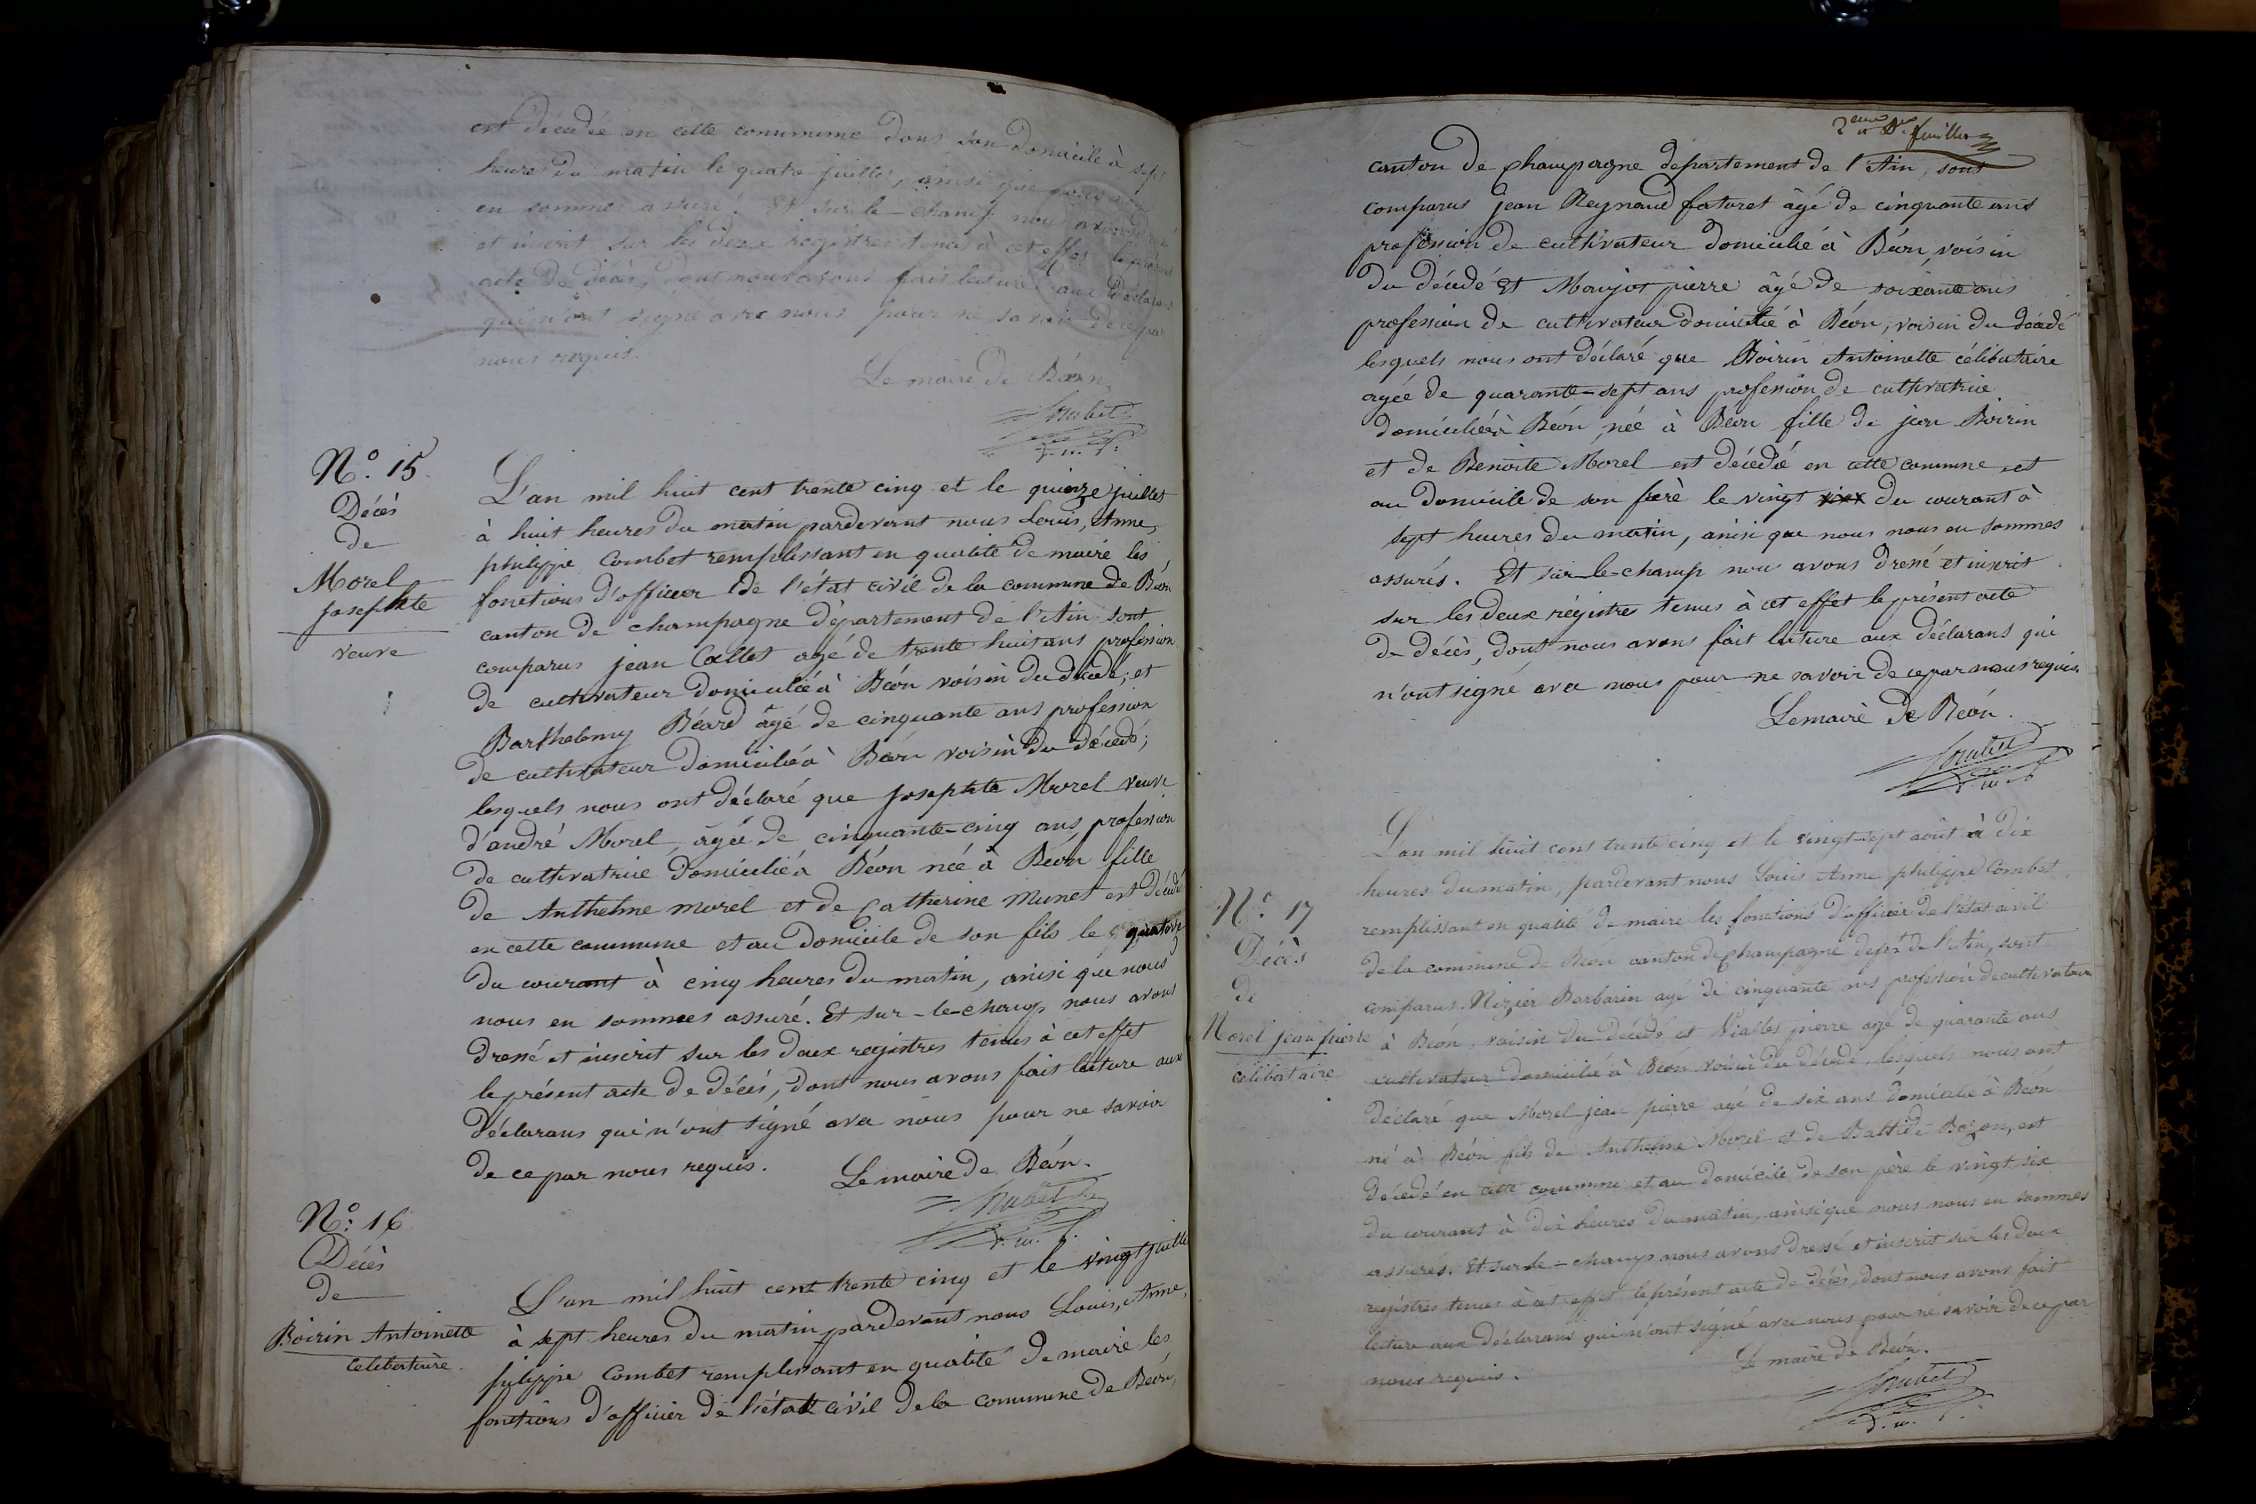 est décédée en cette commune dans son domicile à sept
heures du matin le quatre juillet, ainsi que nous nous
en sommes assuré. Et sur-le-champ nous avons dressé
et inscrit sur les deux registres tenus à cet effet le présent
acte de décès, dont nous avons fait lecture aux déclarans
qui n'ont signé avec nous pour ne savoir de ce par
nous requis.
Le maire de Béon.
Combet
N.° 15
Décès
de
Morel
Josephte
veuve
L'an mil huit cent trente cinq et le quinze juillet
à huit heures du matin pardevant nous Louis, Anne,
philippe Combet remplissant en qualité de maire les
fonctions d'officier de l'état civil de la commune de Béon
canton de champagne département de l'Ain sont
comparus jean Callet agé de trente huit ans profession
de cultivateur domicilié à Béon voisin du décédé; et
Barthelemy Béard âgé de cinquante ans profession
de cultivateur domicilié à Béon voisin du décédé;
lesquels nous ont déclaré que Josephte Morel veuve
d'andré Morel, âgée de cinquante-cinq ans profession
de cultivatrice domicilié à Béon née à Béon fille
de Anthelme morel et de Catherine Munet est décédé
en cette commune et au domicile de son fils le quatorze
du courant à cinq heures du matin, ainsi que nous
nous en sommes assuré. Et sur-le-champ nous avons
dressé et inscrit sur les deux registres tenus à cet effet
le présent acte de décès, dont nous avons fait lecture aux
déclarans qui n'ont signé avec nous pour ne savoir
de ce par nous requis.
Le maire de Béon.
Combet
N.° 16
Décès
de
Boirin Antoinette
celibataire
L'an mil huit cent trente cinq et le vingt juillet
à sept heures du matin pardevant nous Louis, Anne,
philippe Combet remplissant en qualité de maire les
fonctions d'officier de l'état civil de la commune de Béon,
2eme et feuillet
canton de champagne département de l'Ain, sont
comparus jean Reynaud faturet âgé de cinquante ans
profession de cultivateur domicilié à Béon, voisin
du décédé et Maujot pierre âgé de soixante ans
profession de cultivateur domicilié à Béon, voisin du décédé
lesquels nous ont déclaré que Boirin Antoinette célibataire
agée de quarante-sept ans profession de cultivatrice
domiciliée à Béon, née à Béon fille de jean Boirin
et de Benoite Morel est décédé en cette commune et
au domicile de son frère le vingt du courant à
sept heures du matin, ainsi que nous nous en sommes
assurés. Et sur-le-champ nous avons dressé et inscrit
sur les deux régistres tenus à cet effet le présent acte
de décès, dont nous avons fait lecture aux déclarans qui
n'ont signé avec nous pour ne savoir de ce par nous requis.
Le maire de Béon.
Combet
N.° 17
Décès
de
Morel jean pierre
célibataire
L'an mil huit cent trente cinq et le vingt-sept août à dix
heures du matin, pardevant nous Louis Anne philippe Combet
remplissant en qualité de maire les fonctions d'officier de l'état civil
de la commune de Béon canton de Champagne dépt de l'Ain, sont
comparus Nizier Barbarin agé de cinquante ans profession de cultivateur
à Béon, voisin du décédé et Viallet pierre agé de quarante ans
cultivateur domicilié à Béon voisin du décédé, lesquels nous ont
déclaré que Morel jean pierre agé de six ans domicilié à Béon
né à Béon fils de Anthelme Morel et de Battide Bozon, est
décédé en cette commune et au domicile de son père le vingt six
du courant à dix heures du matin, ainsi que nous nous en sommes
assurés. Et sur le-champ nous avons dressé et inscrit sur les deux
registres tenus à cet effet le présent acte de décès, dont nous avons fait
lecture aux déclarans qui n'ont signé avec nous pour ne savoir de ce par
nous requis.
Le maire de Béon.
Combet